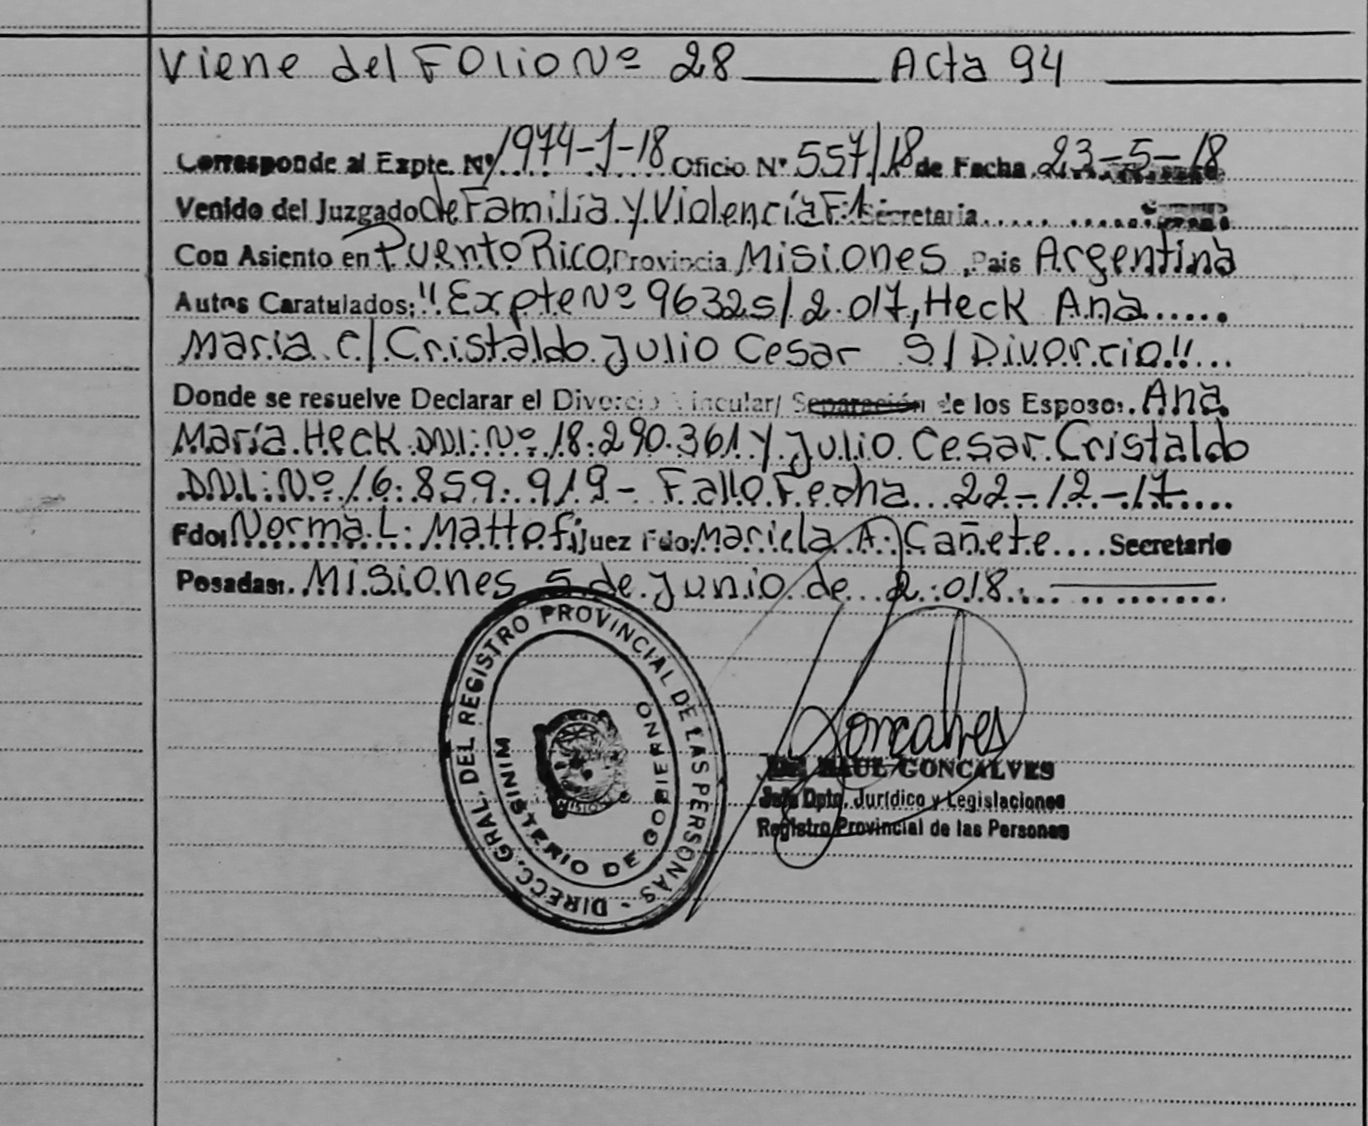 Viene del Folio Nº 28 ______ Acta 94 ______
Corresponde al Expte. Nº 1974-J-18 Oficio Nº 557/18 de Fecha 23-5-18
Venido del Juzgado de Familia y Violencia F. Secretaria
Con Asiento en Puerto Rico, Provincia Misiones, Pais Argentina
Autos Caratulados: "Expte Nº 96325/2.017, Heck Ana.....
María c/ Cristaldo Julio Cesar S/ Divorcio"...
Donde se resuelve Declarar el Divorcio Vincular/ Separación de los Esposos: Ana
María Heck DNI: Nº 18.290.361 y Julio Cesar Cristaldo
DNI: Nº 16.859.919 - Fallo Fecha 22-12-17....
Fdo: Norma L. Juez Fdo: Mariela A. Cañete.... Secretario
Posadas: Misiones 5 de Junio de 2.018
DIRECC. GRAL. DEL REGISTRO PROVINCIAL DE LAS PERSONAS -
MINISTERIO DE GOBIERNO
MISIONES
Goncalves
RAUL GONCALVES
Jefe Dpto. Jurídico y Legislaciones
Registro Provincial de las Personas